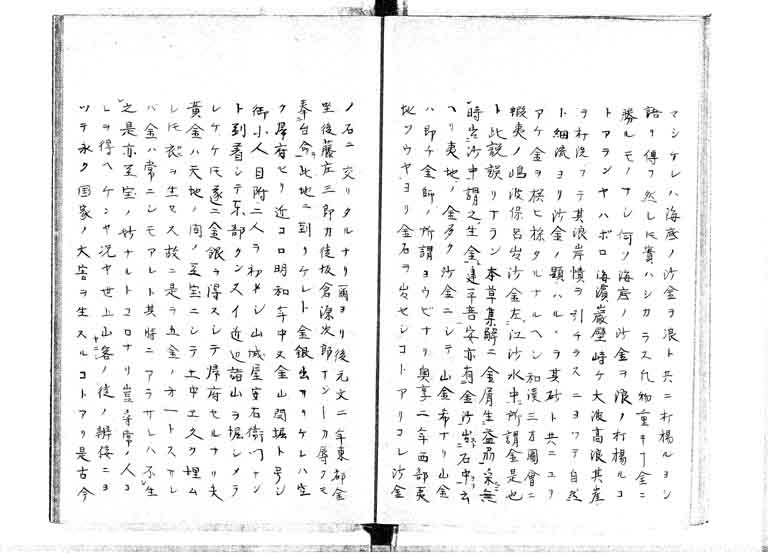 マシケレハ海底ノ沙金ヲ浪ト共ニ打揚ルヨシ
語リ得フ然レ𪜈実ハシカラス凡物重キ㕝金ニ
勝ルモノナシ何ソ海底ノ沙金ヲ浪ノ打揚ルコ
トアランヤハボロ海濱巌壁峙ケ大波高浪其崖
ヲ打洗フテ其浪岸ヲ引チラスニヨツテ自然
ト細流ヨリ沙金ノ顕ハルヽヲ其砂ト共ニユリ
アケ金ヲ採タルナルヘシ和漢三才圖會ニ
蝦夷ノ嶋波保呂出沙金在江沙水中所謂金是也
ト此説誤リナラン本草集解ニ金屑生益州采無
時出沙中謂之生金建平晋安亦有金沙出石中云
ヘリ夷地ノ金多ク沙金ニシテ山金希ナリ山金
ハ即チ金師ノ所謂ヨウビナリ奥享二年西部夷
地ソウヤヨリ金石ヲ出セシコトアリコレ沙金
ノ石ニ交リタルナリ爾ヨリ後元文二年東都金
坐後藤庄三郎カ徒坂倉源次郎ナシ一カ辱クモ
奉台命此地ニ到リケレト金銀出サリケレハ空
ク帰府セリ近コロ明和年中又金山間堀ト号シ
御小人目附二人ヲ初メシ山城屋安右衛門ナン
ト到着シテ東部クンスイ近辺諸山ヲ掘シメラ
レケケ𪜈遂ニ金銀ヲ得スシテ帰府セルナリ夫
黄金ハ天地ノ間ノ至宝ニシテ土中ニ久ク埋ム
レ𪜈衣ヲ生セス故ニ是ヲ五金ノ才一トスサレ
バ金ハ常ニシモアレト其時ニアラサレハ不生
之是亦至宝ノ妙ナルトコロナリ豈尋常ノ人コ
レヲ得ヘケンヤ況ヤ世上山客ノ徒ノ辨侫ニヨ
ツテ永ク国家ノ大害ヲ生スルコトアリ是古今